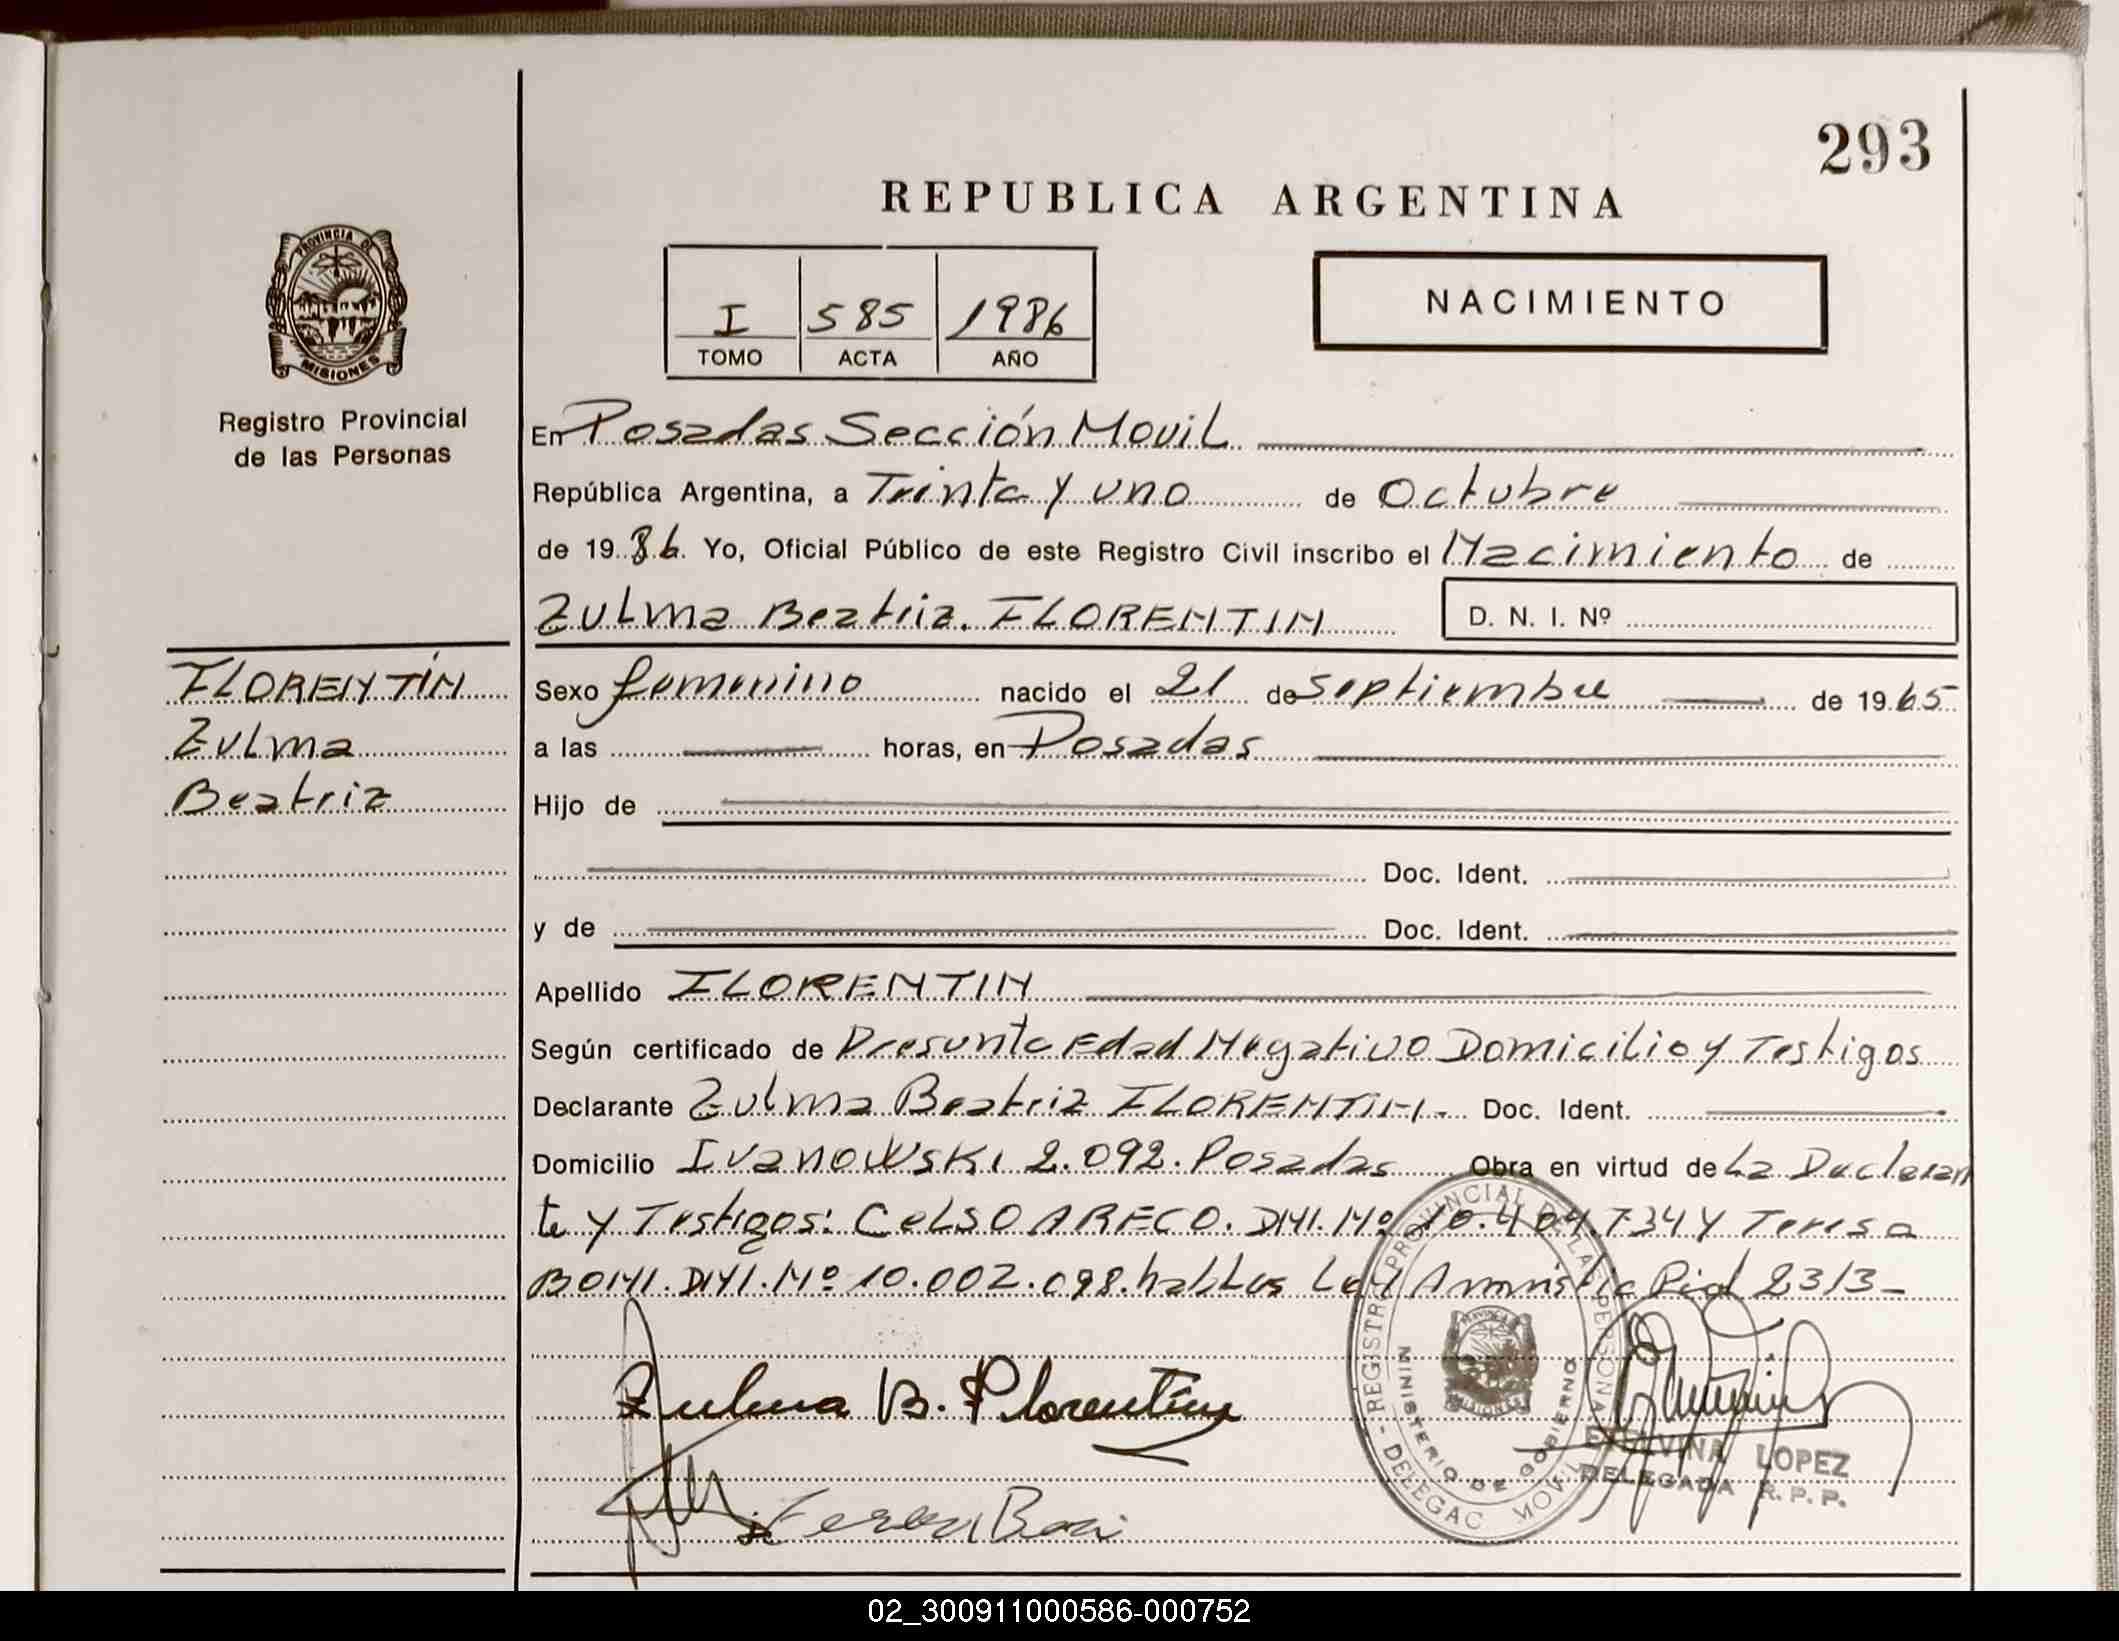 293
REPUBLICA ARGENTINA
PROVINCIA DE
MISIONES
Registro Provincial
de las Personas
I 585 1986
TOMO ACTA AÑO
NACIMIENTO
En Posadas Sección Movil
República Argentina, a Treinta y uno de Octubre
de 1986. Yo, Oficial Público de este Registro Civil inscribo el Nacimiento de
Zulma Beatriz. FLORENTIN D. N. I. Nº
FLORENTÍN
Zulma
Beatriz
Sexo femenino nacido el 21 de Septiembre de 1965
a las horas, en Posadas
Hijo de
Doc. Ident.
y de Doc. Ident.
Apellido FLORENTIN
Según certificado de Presunta Edad Negativo Domicilio y Testigos
Declarante Zulma Beatriz FLORENTIN. Doc. Ident.
Domicilio Ivanowski 2.092. Posadas Obra en virtud de La Declaran
te y Testigos: Celso ARECO. DNI. Nº 10.404.734 y Teresa
BONI. DNI. Nº 10.002.098. habLes Ley Amnistia Pcial 2313-
Zulma B. Florentin
Teresa Boni
REGISTRO PROVINCIAL DE LAS PERSONAS - DELEGAC MOVIL
MINISTERIO DE GOBIERNO
MISIONES
ETELVINA LOPEZ
DELEGADA R. P. P.
02_300911000586-000752